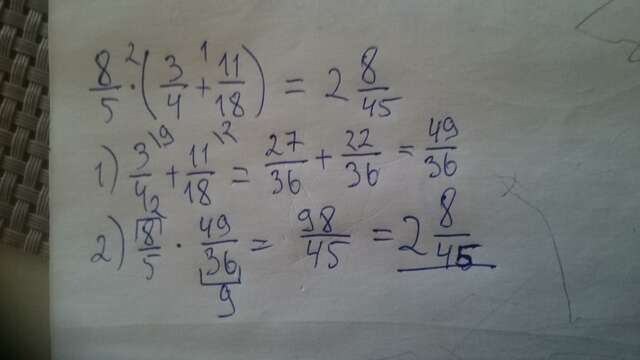 8/5 ·² (3/4 +¹ 11/18) = 2 8/45
1) 3/4 \9 + 11/18 \2 = 27/36 + 22/36 = 49/36
2) 8/5 2 · 49/36 9 = 98/45 = 2 8/45